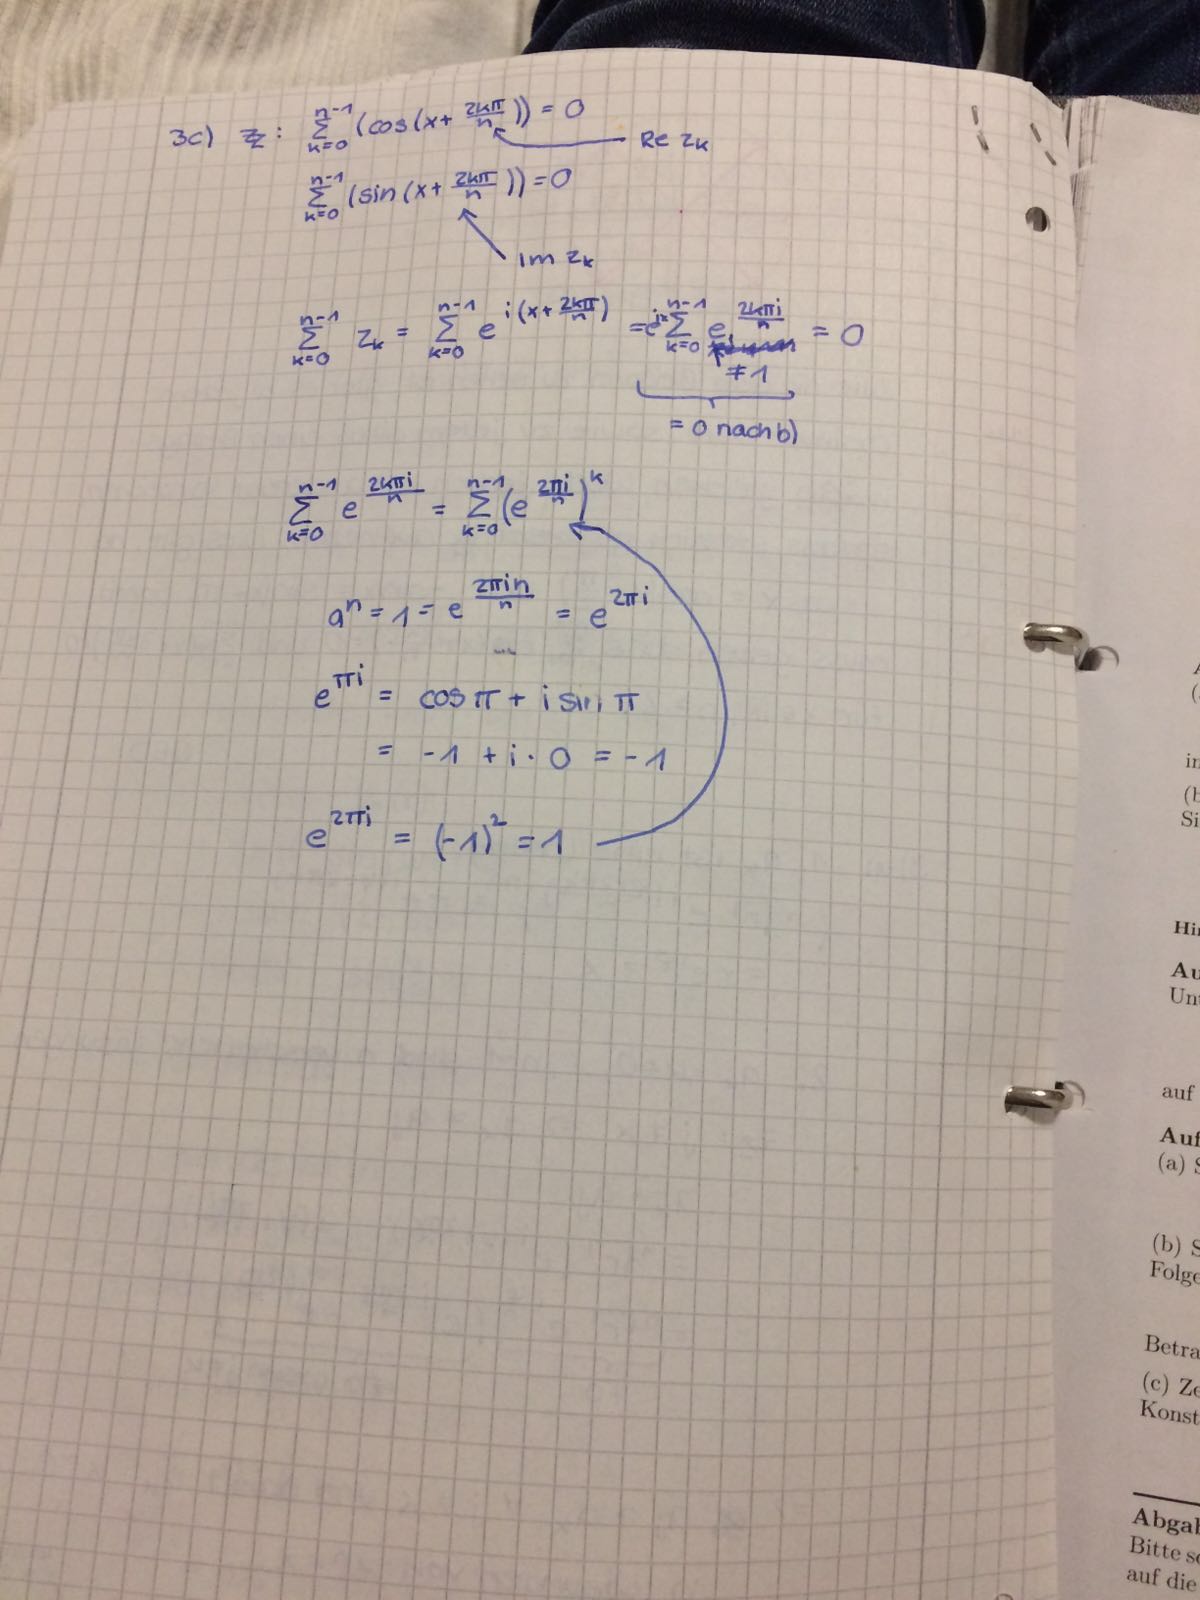 3c) Zz: ∑_{k=0}^{n-1} (cos(x + 2kπ/n)) = 0
Re z_k
∑_{k=0}^{n-1} (sin(x + 2kπ/n)) = 0
Im z_k
∑_{k=0}^{n-1} z_k = ∑_{k=0}^{n-1} e^{i(x + 2kπ/n)} = e^{ix} ∑_{k=0}^{n-1} e^{2kπi/n} = 0
≠ 1
= 0 nach b)
∑_{k=0}^{n-1} e^{2kπi/n} = ∑_{k=0}^{n-1} (e^{2πi/n})^k
a^n = 1 = e^{2πin/n} = e^{2πi}
e^{πi} = cos π + i sin π
= -1 + i · 0 = -1
e^{2πi} = (-1)^2 = 1
in
(b
Si
Hi
Au
Unt
auf
Auf
(a) S
(b) S
Folge
Betra
(c) Ze
Konst
Abgab
Bitte sc
auf die